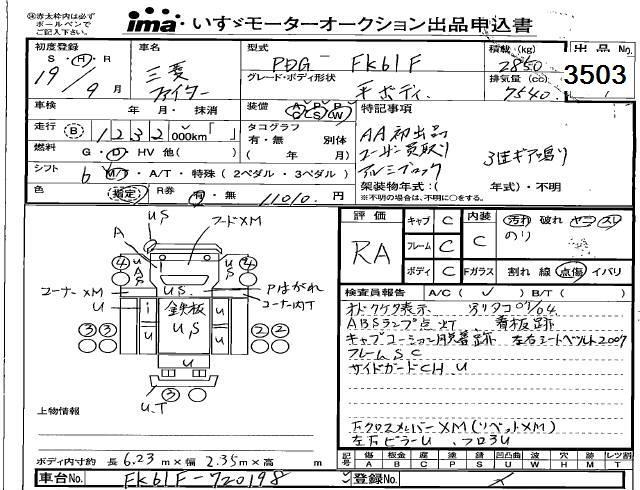 ※赤太枠内は必ず
ボールペンで
ご記入下さい。
ima いすゞモーターオークション出品申込書
初度登録 S・H・R 19年 9月
車名 三菱 ファイター
型式 PDG-FK61F
グレード・ボディ形状 平ボディ
積載(kg) 2850
排気量(cc) 7540
出品No. 3503
車検 年・月・抹消
装備 A/C P/S P/W
走行 B 1232 000km
タコグラフ 有・無 別体 ( 年 月)
燃料 G・D・HV 他( )
シフト 6 M/T・A/T・特殊(2ペダル・3ペダル)
色 指定 R券 有・無 11010.円
特記事項
AA初出品
ユーザー買取り
アルミブロック
3速ギア鳴り
架装物年式:( 年式)・不明
※不明の場合は、不明に○をする。
評価 RA
キャブ C
フレーム C
ボディ C
内装 C
汚れ 破れ ヤニ スレ
のり
Fガラス 割れ 線 点傷 イバリ
US
フードXM
A
コーナーXM
U
US.
鉄板
U,S
Pはがれ
コーナー内T
U.T
検査員報告 A/C( ✓ ) B/T( )
オドケタ表示 別タコ07/04
ABSランプ点灯 看板跡
キャブコーション脱着跡 左右シートベルト2007
フレームSC
サイドガードCH U
下クロスメンバーXM(リベットXM)
左右ピラーU フロ3U
上物情報
ボディ内寸約 長 6.23 m×幅 2.35 m×高 m
記号 傷A 板金B 腐C 塗P 錆S 凹U 波W 穴H 跡M 欠T レツ割
車台No. FK61F-720198
登録No.